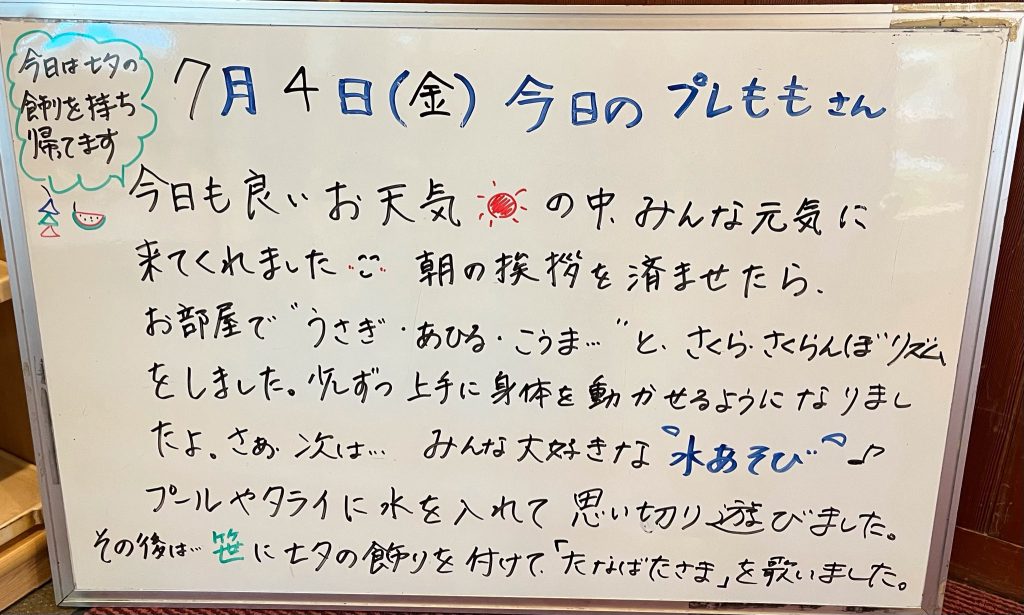 今日は七夕の
飾りを持ち
帰てます
7月4日(金) 今日の プレももさん
今日も良いお天気 の中、みんな元気に
来てくれました 朝の挨拶を済ませたら、
お部屋で"うさぎ・あひる・こうま…"と、さくら・さくらんぼリズム
をしました。少しずつ上手に身体を動かせるようになりまし
たよ。さぁ、次は… みんな大好きな "水あそび"♪
プールやタライに水を入れて 思い切り遊びました。
その後は… 笹に七夕の飾りを付けて、「たなばたさま」を歌いました。